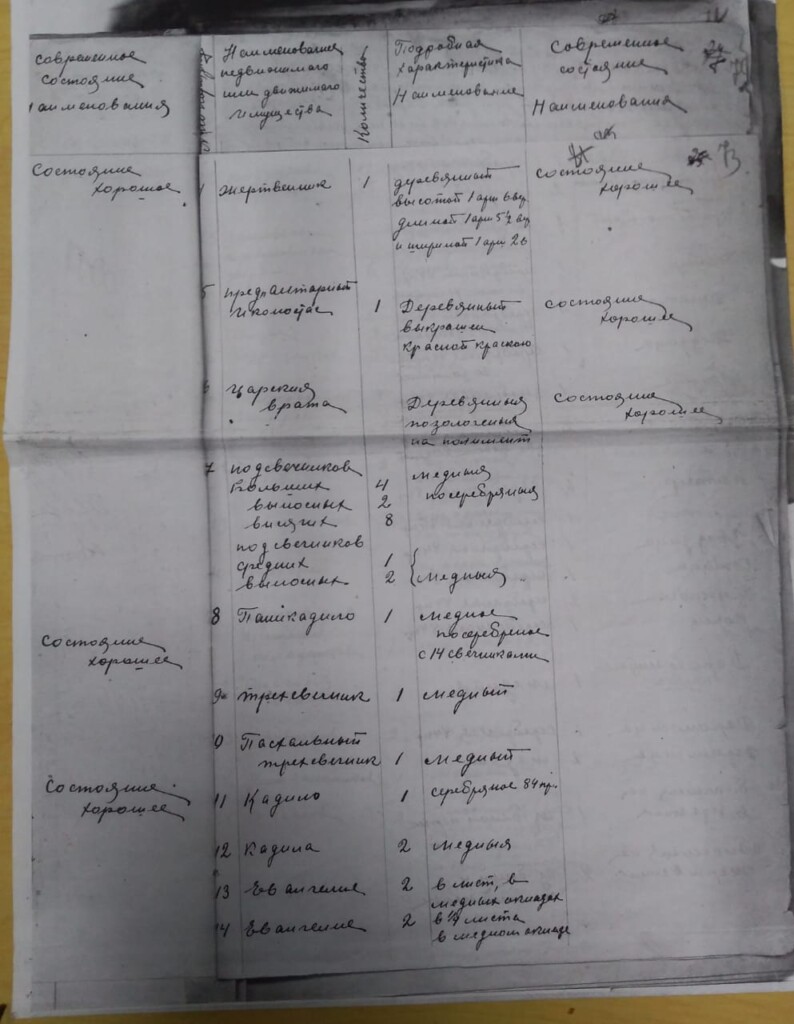 Современное
состояние
Наименования
Наименование
недвижимого
или движимого
Имущества
Количество
Подробная
характеристика
Наименование
Современное
состояние
Наименования
73
Состояние
хорошее
Жертвенник 1 деревянный
высотой 1 арш 6 вер
длиной 1 арш 5½ вер
и шириной 1 арш 2 в
Состояние
хорошее
5 предалтарный
Иконостас 1 Деревянный
выкрашен
красной краскою
состояние
хорошее
6 Царския
врата
Деревянныя
позолоченыя
на полимент
состояние
хорошее
7 подсвечников
больших 4 медныя
выносных 2 посеребряныя
висячих 8
подсвечников
средних 1
выносных 2 медныя
8 Паникадило 1 медное
посеребреное
с 14 свечниками
Состояние
хорошее
9 трехсвечник 1 медный
0 Пасхальный
трехсвечник 1 медный
Состояние
хорошее
11 Кадило 1 серебряное 84 пр.
12 Кадила 2 медныя
13 Евангелие 2 в лист, в
медных окладах
14 Евангелие 2 в ¼ листа
в медном окладе